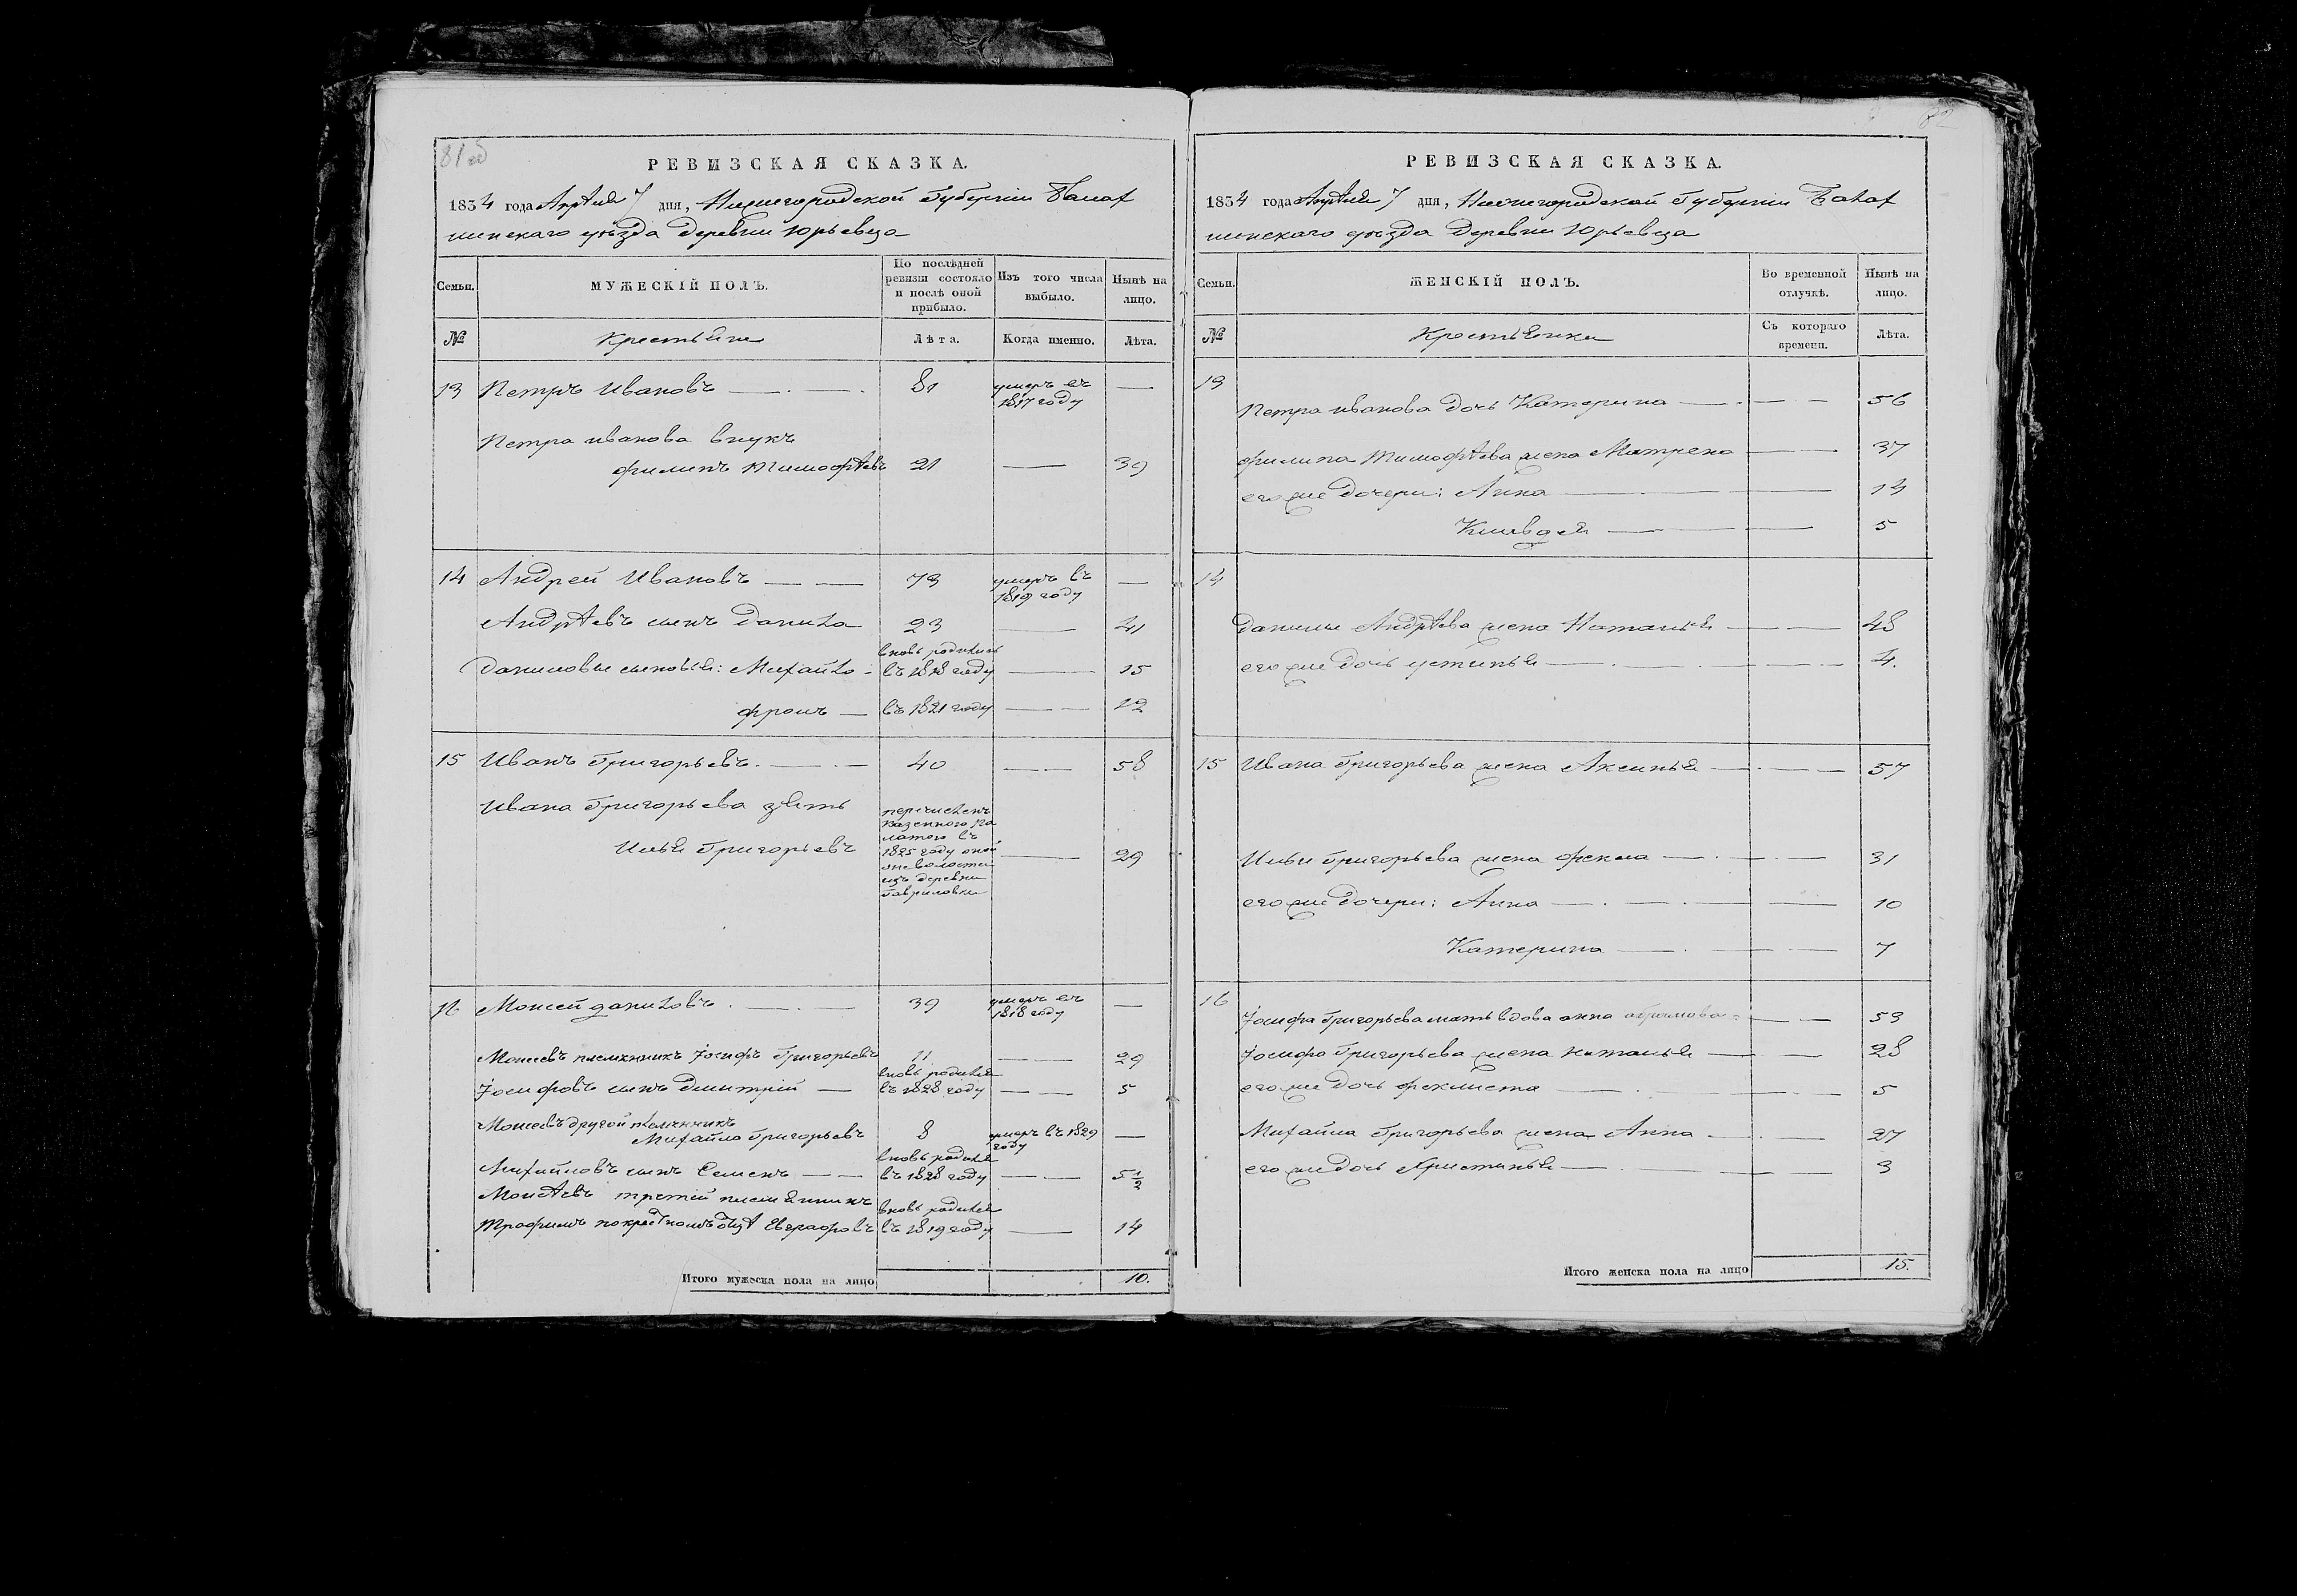 81об
РЕВИЗСКАЯ СКАЗКА.
1834 года Апреля 7 дня, Нижегородской Губернии Балах
нинскаго уѣзда деревни Юрьевца
Семьи.
МУЖЕСКІЙ ПОЛЪ.
По послѣдней
ревизіи состояло
и послѣ оной
прибыло.
Изъ того числа
выбыло.
Нынѣ на
лицо.
№
Крестьяне
Лѣта.
Когда именно.
Лѣта.
13 Петръ Ивановъ 81 умеръ въ —
1817 году
Петра Иванова внукъ
Филипъ Тимофѣевъ 21 — 39
14 Андрей Ивановъ 73 умеръ въ —
1819 году
Андрѣевъ сынъ Данила 23 — 41
вновь родились
Даниловы сыновья: Михайло въ 1818 году — 15
Фролъ въ 1821 году — 12
15 Иванъ Григорьевъ 40 — 58
Ивана Григорьева зять
Илья Григорьевъ
перечисленъ
казенною па
латою въ
1825 году оной
же волости
изъ деревни
Гавриловки
— 29
16 Моисей Даниловъ 39 умеръ въ —
1818 году
Моисеевъ племянникъ Іосифъ Григорьевъ 11 — 29
вновь родился
Іосифовъ сынъ Дмитрій въ 1828 году — 5
Моисеевъ другой племянникъ
Михайла Григорьевъ 8 умеръ въ 1829 —
году
вновь родился
Михайловъ сынъ Семенъ въ 1828 году — 5 1/2
Моисѣевъ третей племянникъ
вновь родился
Трофимъ по крестномъ отцѣ Евграфовъ въ 1819 году — 14
Итого мужеска пола на лицо 10.
РЕВИЗСКАЯ СКАЗКА.
1834 года Апреля 7 дня, Нижегородской Губернии Балах
нинскаго уѣзда деревни Юрьевца
Семьи.
ЖЕНСКІЙ ПОЛЪ.
Во временной
отлучкѣ.
Нынѣ на
лицо.
№
Крестьянки
Съ котораго
времени.
Лѣта.
13
Петра Иванова дочь Катерина — 56
Филипа Тимофѣева жена Матрена — 37
его же дочери: Анна — 14
Клавдея — 5
14
Данилы Андрѣева жена Наталья — 48
его же дочь Устинья — 4.
15 Ивана Григорьева жена Аксинья — 57
Ильи Григорьева жена Фекла — 31
его же дочери: Анна — 10
Катерина — 7
16
Іосифа Григорьева мать вдова анна абрамова — 53
Іосифа Григорьева жена наталья — 28
его же дочь Феклиста — 5
Михайла Григорьева жена Анна — 27
его же дочь Христинья — 3
Итого женска пола на лицо 15.